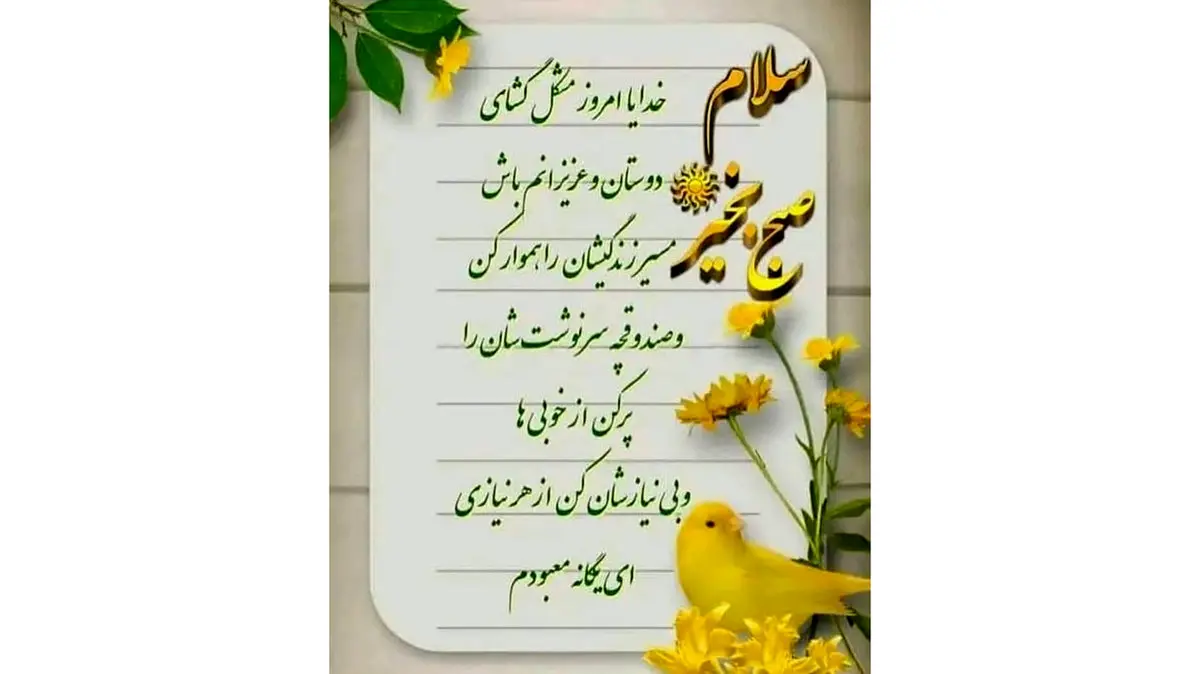 سلام
صبح بخیر
خدایا امروز مشکل گشای
دوستان و عزیزانم باش
مسیر زندگیشان را هموار کن
و صندوقچه سرنوشت شان را
پر کن از خوبی ها
و بی نیازشان کن از هر نیازی
ای یگانه معبودم